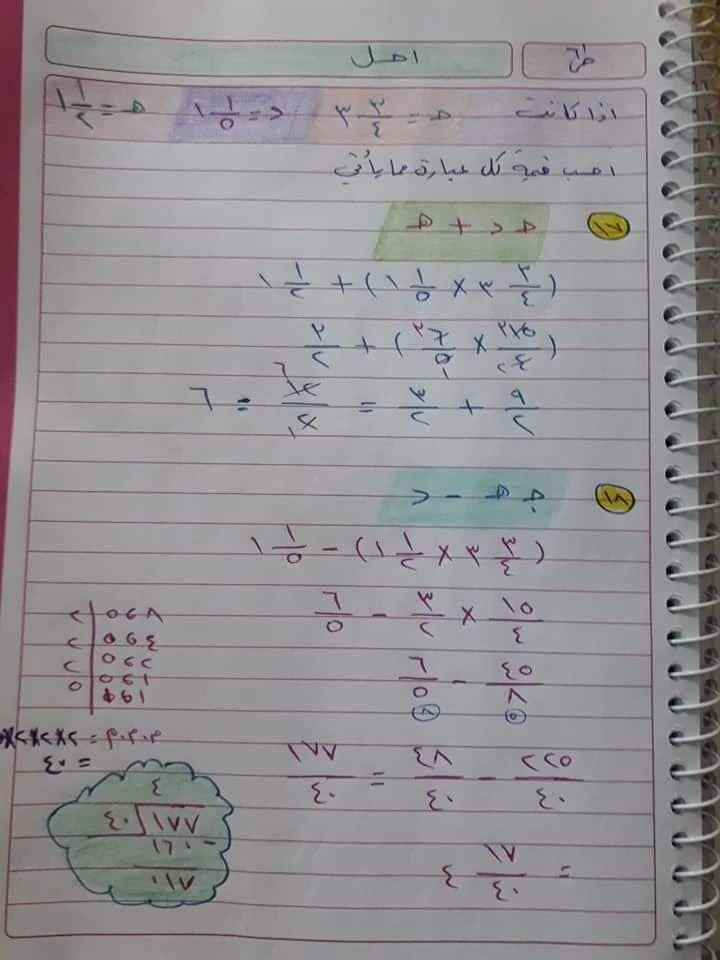 ص احل
اذا كانت جـ = ٣ ٣/٤ د = ١ ١/٥ هـ = ١ ١/٢
احسب قيمة كل عبارة مما يأتي
١٧ جـ د + هـ
(٣ ٣/٤ × ١ ١/٥) + ١ ١/٢
(١٥/٤ × ٦/٥) + ٣/٢
٩/٢ + ٣/٢ = ١٢/٢ = ٦
١٨ جـ هـ − د
(٣ ٣/٤ × ١ ١/٢) − ١ ١/٥
١٥/٤ × ٣/٢ − ٦/٥
٤٥/٨ − ٦/٥
٢٢٥/٤٠ − ٤٨/٤٠ = ١٧٧/٤٠
= ٤ ١٧/٤٠
٨ ، ٥ | ٢
٤ ، ٥ | ٢
٢ ، ٥ | ٢
١ ، ٥ | ٥
١ ، ١
م.م.أ = ٢×٢×٢×
= ٤٠
٤
١٧٧ ٤٠
− ١٦٠
٠١٧